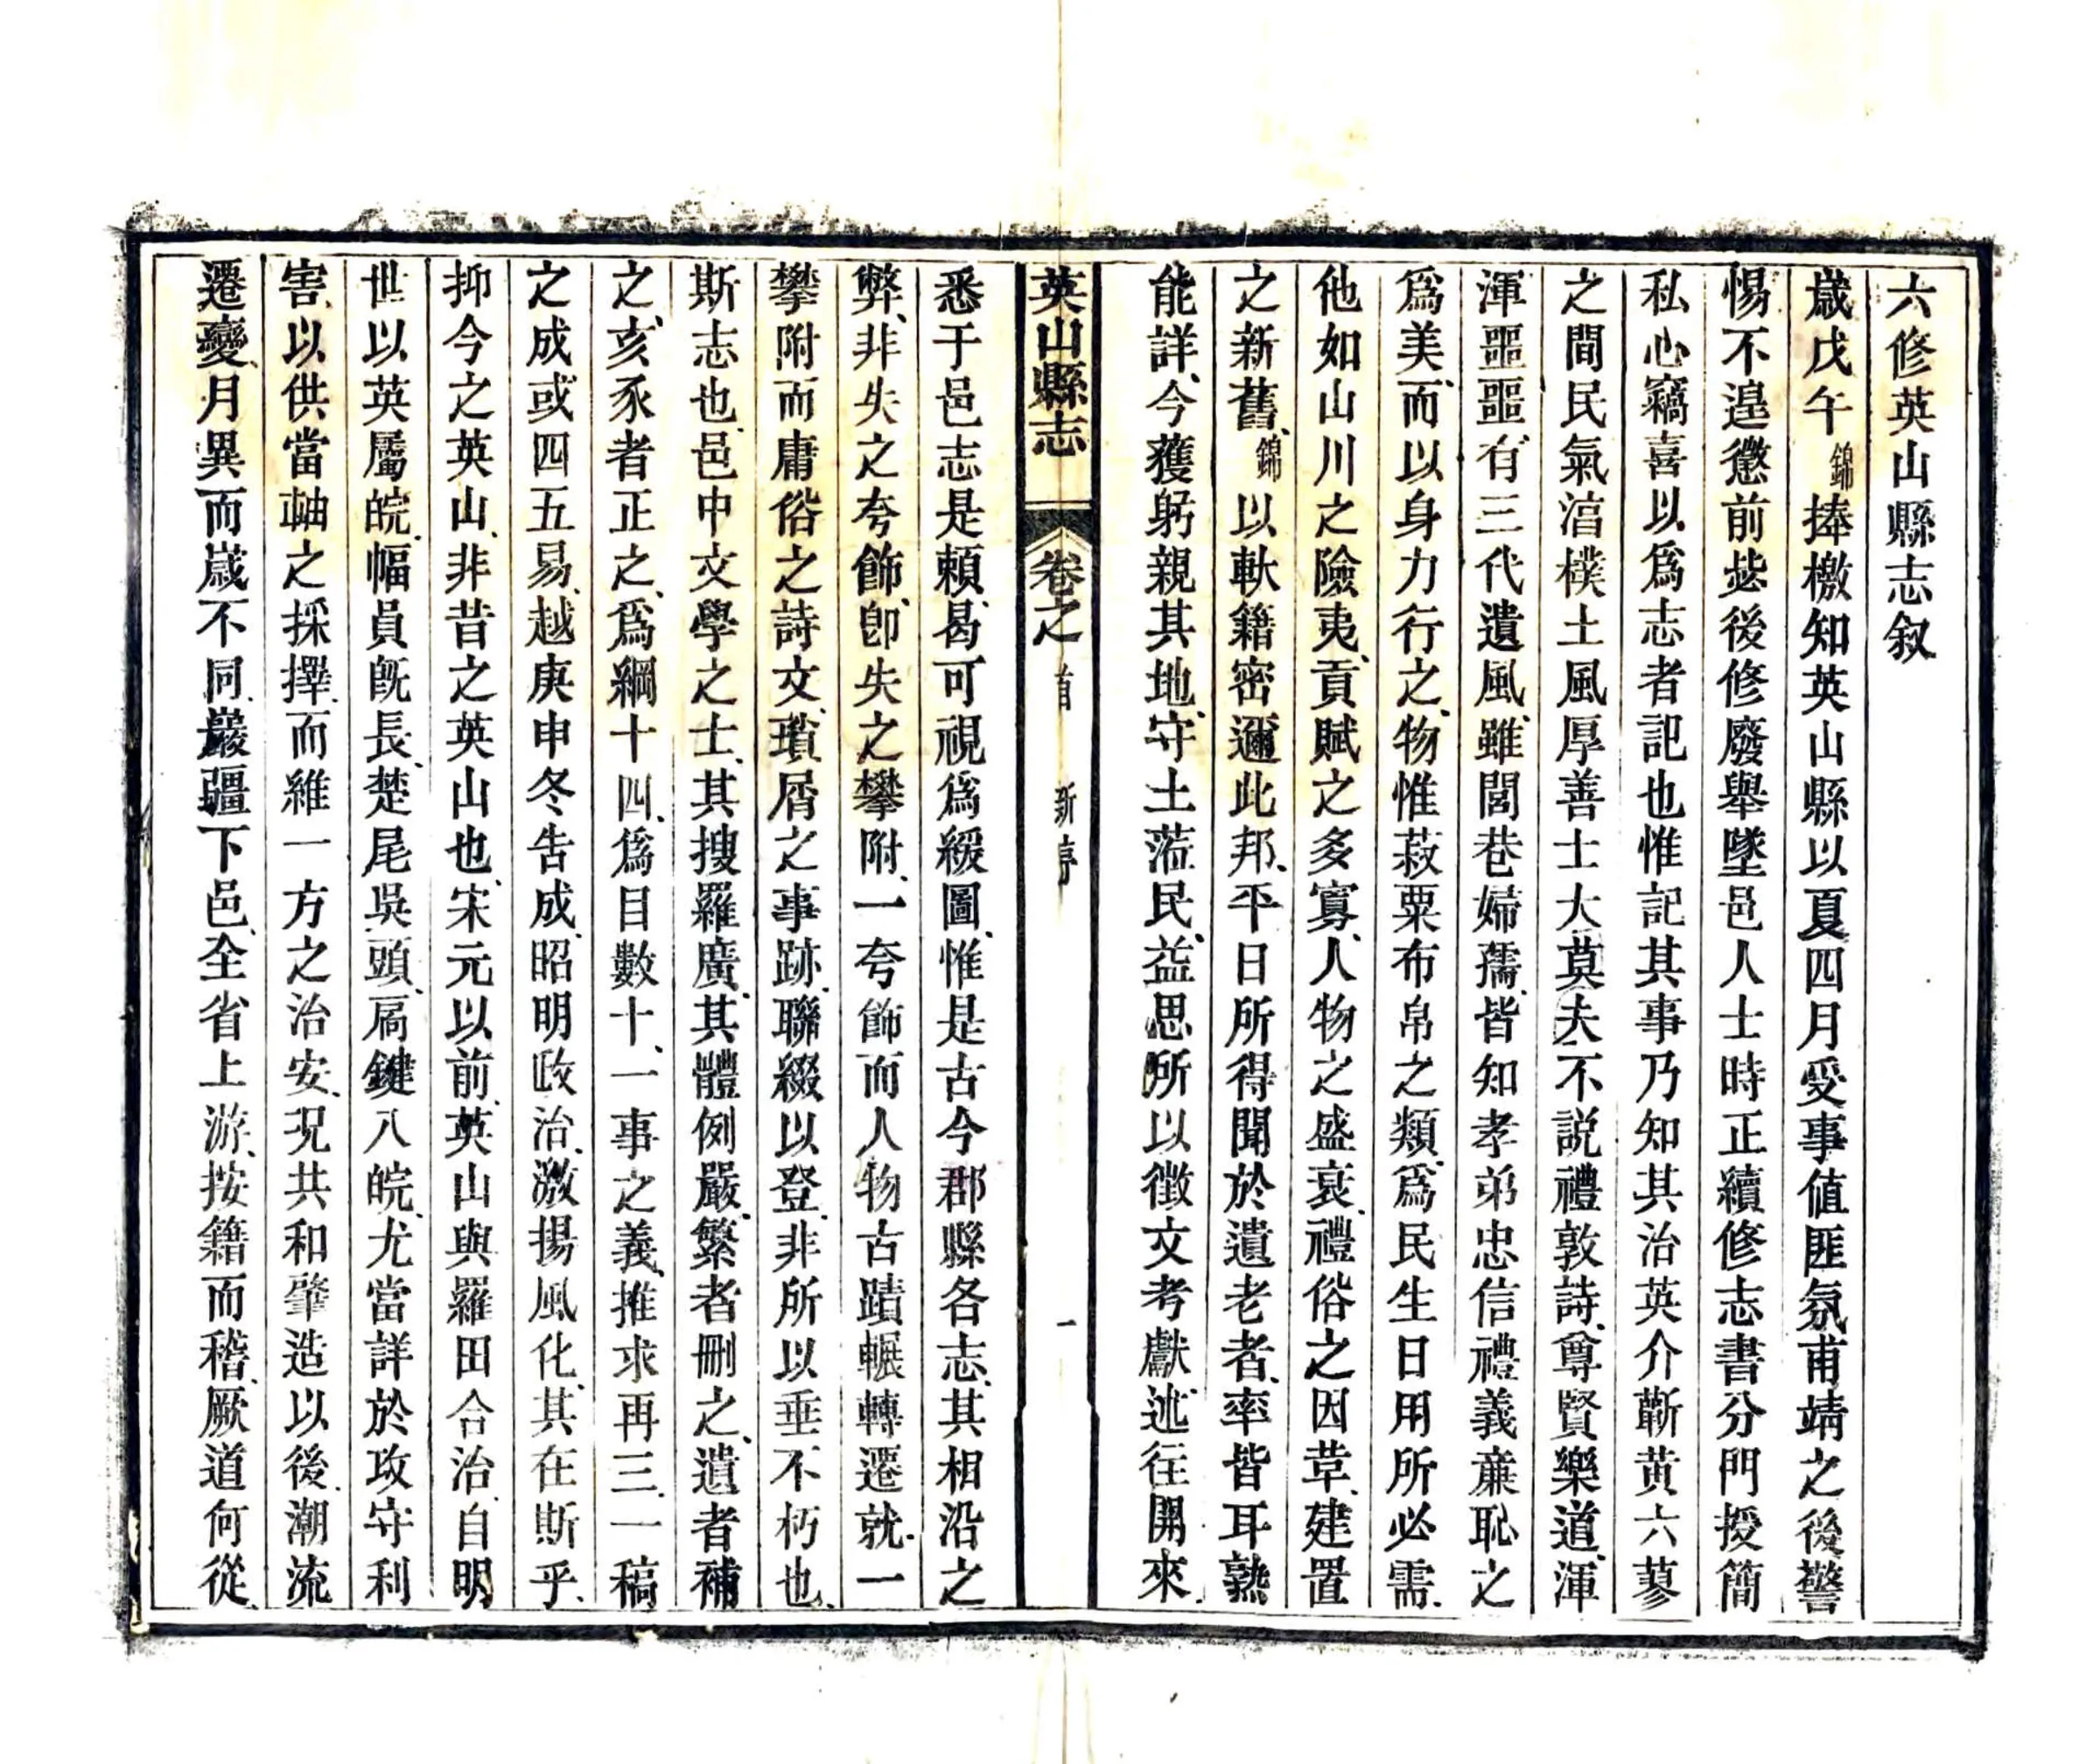 六修英山縣志叙
歲戊午錦捧檄知英山縣以夏四月受事值匪氛甫靖之後警
惕不遑懲前毖後修廢舉墜邑人士時正續修志書分門授簡
私心竊喜以爲志者記也惟記其事乃知其治英介蘄黄六蓼
之間民氣湻樸土風厚善士大莫夫不説禮敦詩、尊賢樂道、渾
渾噩噩有三代遺風、雖閭巷婦孺、皆知孝弟忠信禮義廉恥之
爲美、而以身力行之、物惟菽粟布帛之類、爲民生日用所必需、
他如山川之險夷、貢賦之多寡、人物之盛衰、禮俗之因革、建置
之新舊、錦以軼籍密邇此邦、平日所得聞於遺老者、率皆耳熟
能詳、今獲躬親其地、守土蒞民、益思所以徵文考獻、述往開來、
英山縣志 卷之首 新序 一
悉于邑志是賴、曷可視爲緩圖、惟是古今郡縣各志、其相沿之
弊、非失之夸飾、卽失之攀附、一夸飾而人物古蹟輾轉遷就、一
攀附而庸俗之詩文、瑣屑之事跡、聯綴以登、非所以垂不朽也、
斯志也、邑中文學之士、其搜羅廣、其體例嚴、繁者刪之、遺者補
之、亥豕者正之、爲綱十四、爲目數十、一事之義、推求再三、一稿
之成或四五易、越庚申冬告成、昭明政治、激揚風化、其在斯乎、
抑今之英山、非昔之英山也、宋元以前、英山與羅田合治、自明
世以英屬皖、幅員旣長、楚尾吳頭、扃鍵八皖、尤當詳於攻守利
害、以供當軸之採擇、而維一方之治安、況共和肇造以後、潮流
遷變、月異而歲不同、巖疆下邑、全省上游、按籍而稽、厥道何從、